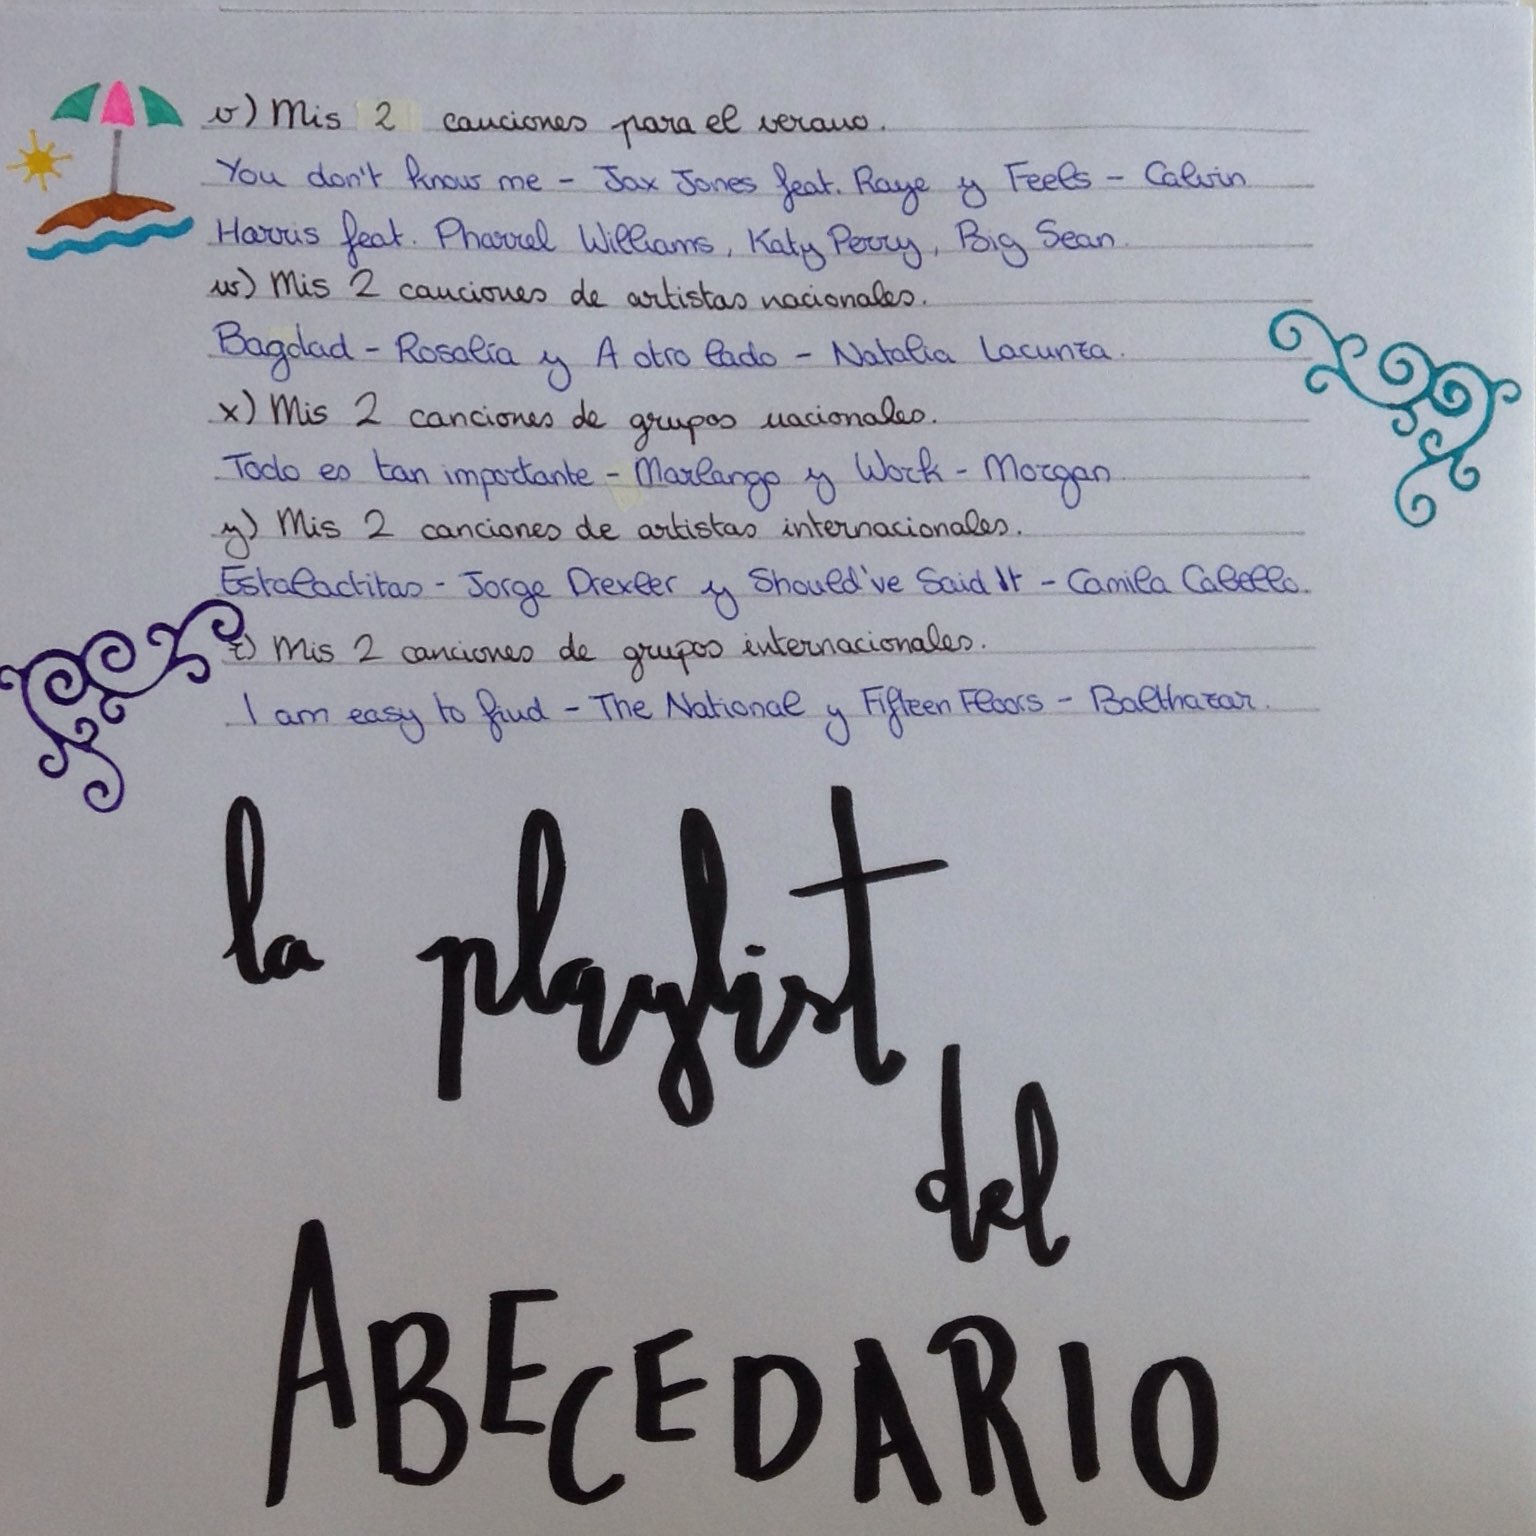 v) Mis 2 canciones para el verano.
You don't know me - Jax Jones feat. Raye y Feels - Calvin
Harris feat. Pharrel Williams, Katy Perry, Big Sean.
w) Mis 2 canciones de artistas nacionales.
Bagdad - Rosalía y A otro lado - Natalia Lacunza.
x) Mis 2 canciones de grupos nacionales.
Todo es tan importante - Marlango y Work - Morgan.
y) Mis 2 canciones de artistas internacionales.
Estalactitas - Jorge Drexler y Should've Said It - Camila Cabello.
z) Mis 2 canciones de grupos internacionales.
I am easy to find - The National y Fifteen Floors - Balthazar.
la playlist
del
ABECEDARIO